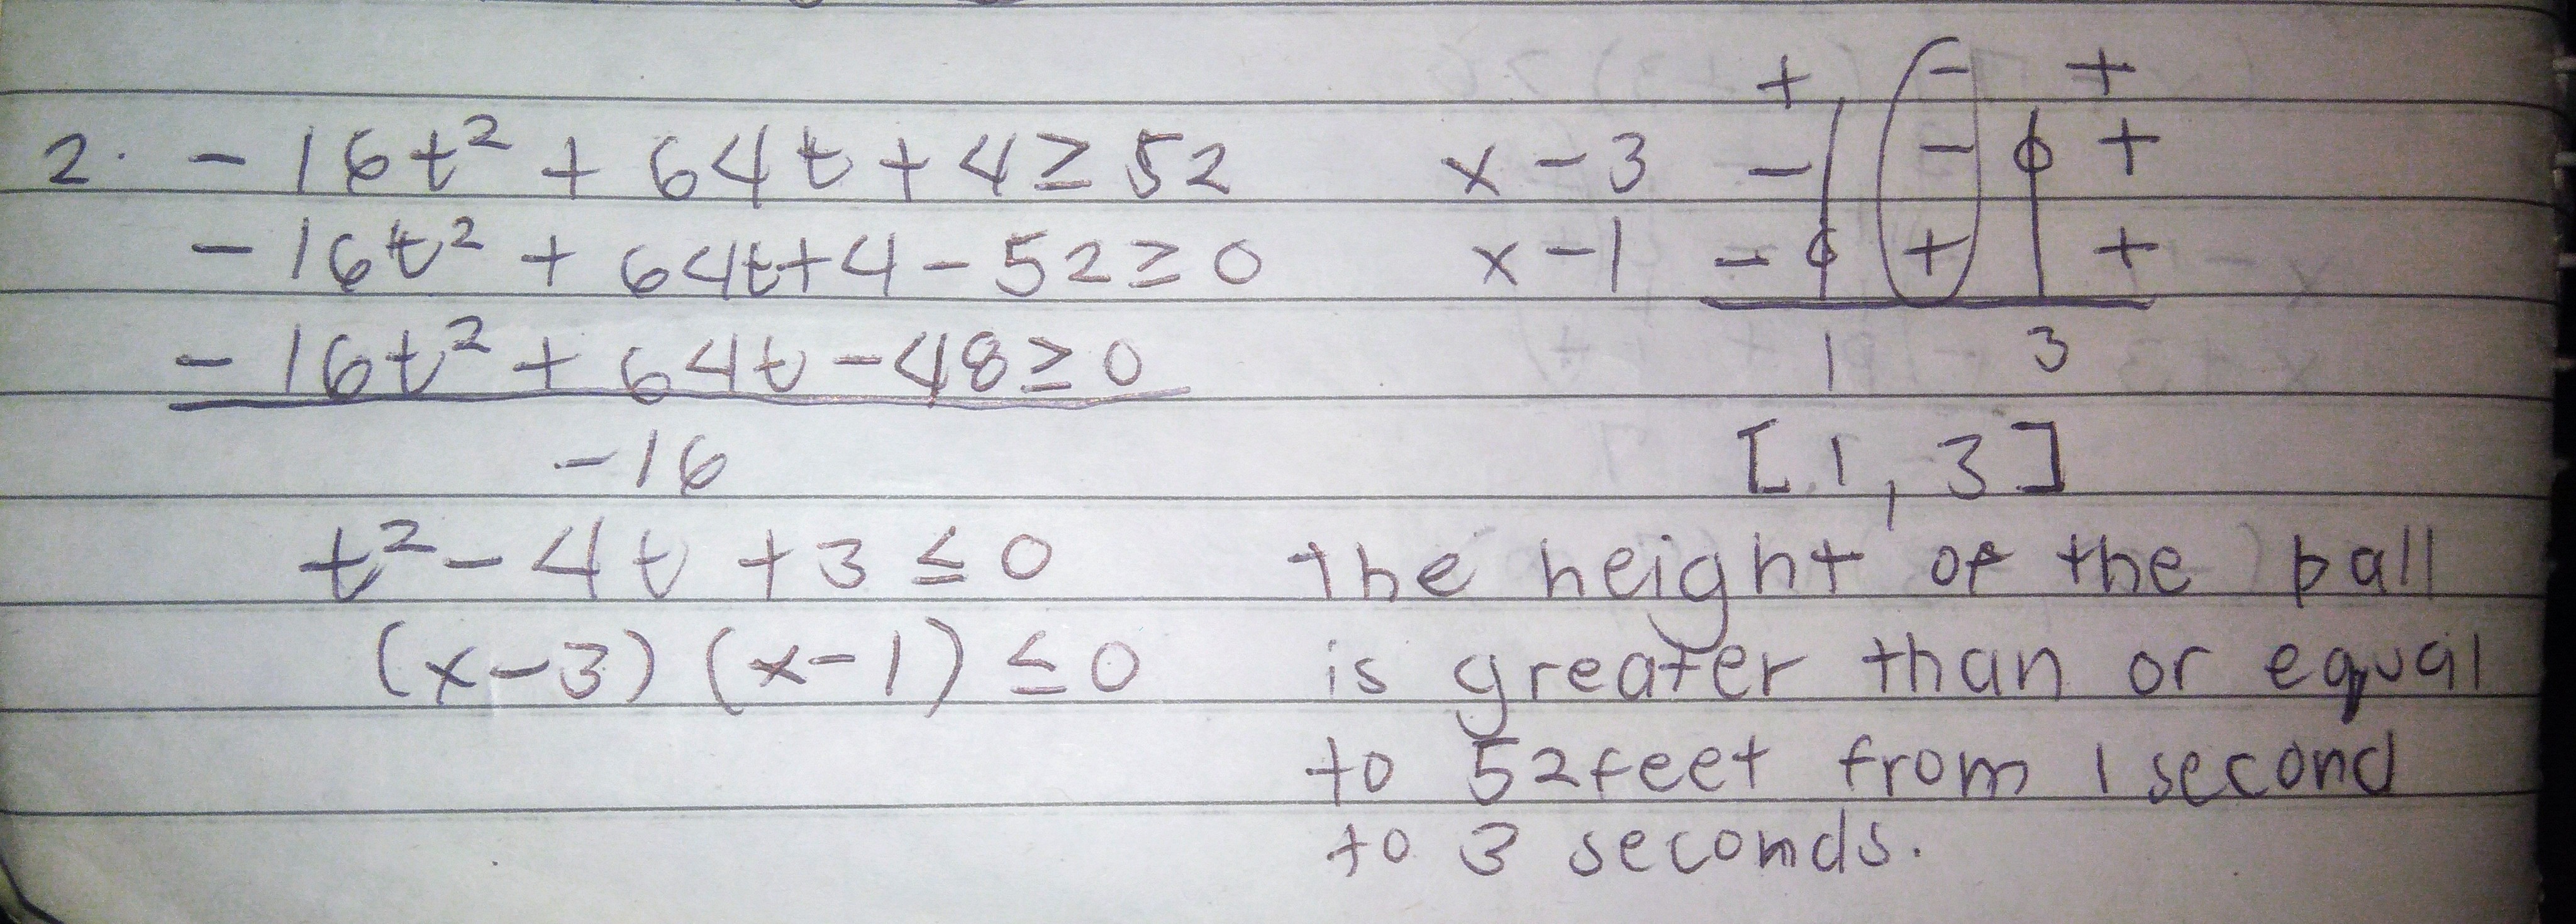 2. -16t² + 64t + 4 ≥ 52
-16t² + 64t + 4 - 52 ≥ 0
-16t² + 64t - 48 ≥ 0
-16
t² - 4t + 3 ≤ 0
(x-3) (x-1) ≤ 0
+ - +
x - 3 - - ϕ +
x - 1 - ϕ + +
1 3
[1, 3]
the height of the ball
is greater than or equal
to 52feet from 1 second
to 3 seconds.